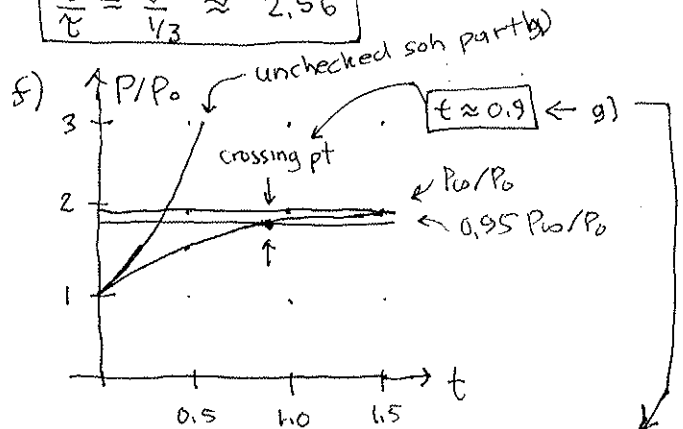 τ ≈ 1/3 ≈ 2,56
unchecked soln part b)
f) P/P₀
3
t ≈ 0.9 ← g)
crossing pt
2
P∞/P₀
0.95 P∞/P₀
1
t
0.5 1.0 1.5